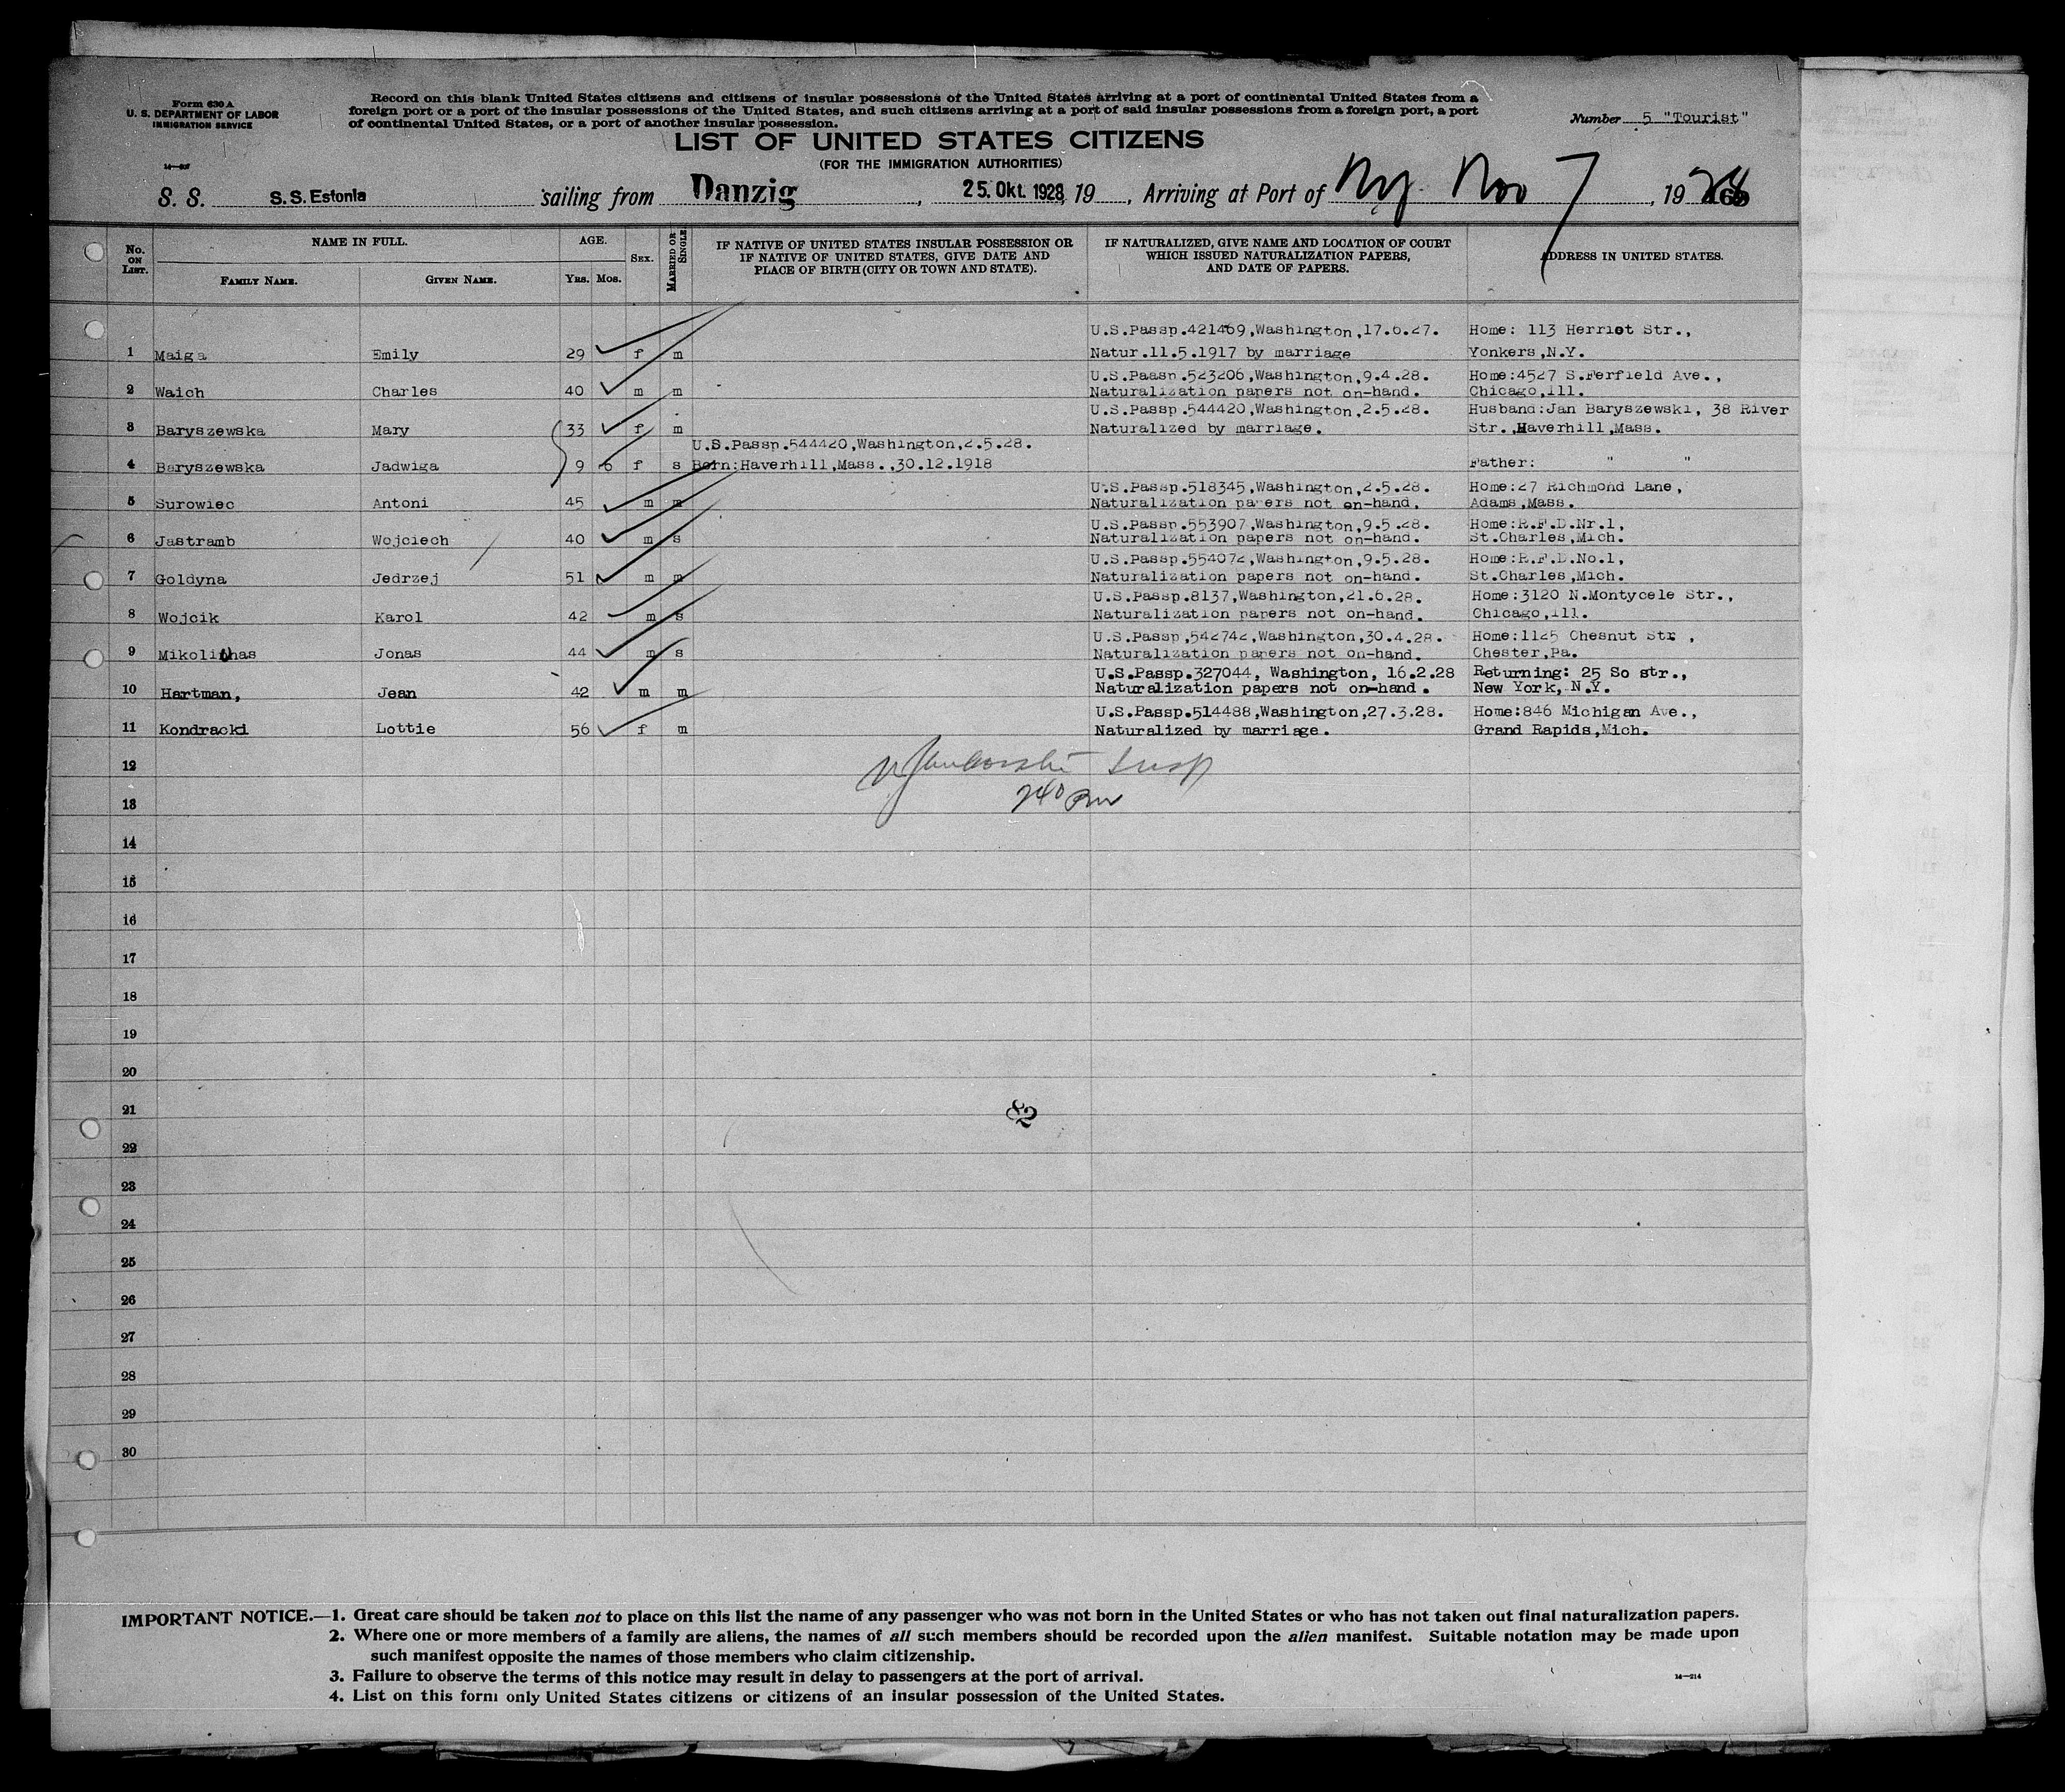 Form 630 A
U. S. DEPARTMENT OF LABOR
IMMIGRATION SERVICE
14—207
Record on this blank United States citizens and citizens of insular possessions of the United States arriving at a port of continental United States from a
foreign port or a port of the insular possessions of the United States, and such citizens arriving at a port of said insular possessions from a foreign port, a port
of continental United States, or a port of another insular possession.
Number 5 "Tourist"
LIST OF UNITED STATES CITIZENS
(FOR THE IMMIGRATION AUTHORITIES)
S. S. S.S. Estonia sailing from Danzig, 25. Okt. 1928, 19 , Arriving at Port of Ny Nov 7, 1928
No. ON LIST.
NAME IN FULL.
FAMILY NAME. GIVEN NAME.
AGE.
YRS. MOS.
SEX.
MARRIED OR SINGLE.
IF NATIVE OF UNITED STATES INSULAR POSSESSION OR
IF NATIVE OF UNITED STATES, GIVE DATE AND
PLACE OF BIRTH (CITY OR TOWN AND STATE).
IF NATURALIZED, GIVE NAME AND LOCATION OF COURT
WHICH ISSUED NATURALIZATION PAPERS,
AND DATE OF PAPERS.
ADDRESS IN UNITED STATES.
U.S.Passp.421469,Washington,17.6.27. Home: 113 Herriot Str.,
1 Maiga Emily 29 f m Natur.11.5.1917 by marriage Yonkers,N.Y.
U.S.Paasn.523206,Washington,9.4.28. Home:4527 S.Ferfield Ave.,
2 Waich Charles 40 m m Naturalization papers not on-hand. Chicago,Ill.
U.S.Passp.544420,Washington,2.5.28. Husband:Jan Baryszewski, 38 River
3 Baryszewska Mary 33 f m Naturalized by marriage. Str.,Haverhill,Mass.
U.S.Passp.544420,Washington,2.5.28.
4 Baryszewska Jadwiga 9 6 f s Born:Haverhill,Mass.,30.12.1918 Father: " "
U.S.Passp.518345,Washington,2.5.28. Home:27 Richmond Lane,
5 Surowiec Antoni 45 m m Naturalization papers not on-hand. Adams,Mass.
U.S.Passp.553907,Washington,9.5.28. Home:R.F.D.Nr.1,
6 Jastramb Wojciech 40 m s Naturalization papers not on-hand. St.Charles,Mich.
U.S.Passp.554072,Washington,9.5.28. Home:R.F.D.No.1,
7 Goldyna Jedrzej 51 m m Naturalization papers not on-hand. St.Charles,Mich.
U.S.Passp.8137,Washington,21.6.28. Home:3120 N.Montycele Str.,
8 Wojcik Karol 42 m s Naturalization papers not on-hand. Chicago,Ill.
U.S.Passp,542742,Washington,30.4.28. Home:1125 Chesnut Str ,
9 Jonas 44 m s Naturalization papers not on-hand. Chester,Pa.
U.S.Passp.327044, Washington, 16.2.28 Returning: 25 So str.,
10 Hartman, Jean 42 m m Naturalization papers not on-hand. New York, N.Y.
U.S.Passp.514488,Washington,27.3.28. Home:846 Michigan Ave.,
11 Kondracki Lottie 56 f m Naturalized by marriage. Grand Rapids,Mich.
12 Insp
13 240 Pm
14
15
16
17
18
19
20
21 82
22
23
24
25
26
27
28
29
30
IMPORTANT NOTICE.—1. Great care should be taken not to place on this list the name of any passenger who was not born in the United States or who has not taken out final naturalization papers.
2. Where one or more members of a family are aliens, the names of all such members should be recorded upon the alien manifest. Suitable notation may be made upon
such manifest opposite the names of those members who claim citizenship.
3. Failure to observe the terms of this notice may result in delay to passengers at the port of arrival.
4. List on this form only United States citizens or citizens of an insular possession of the United States.
14—214